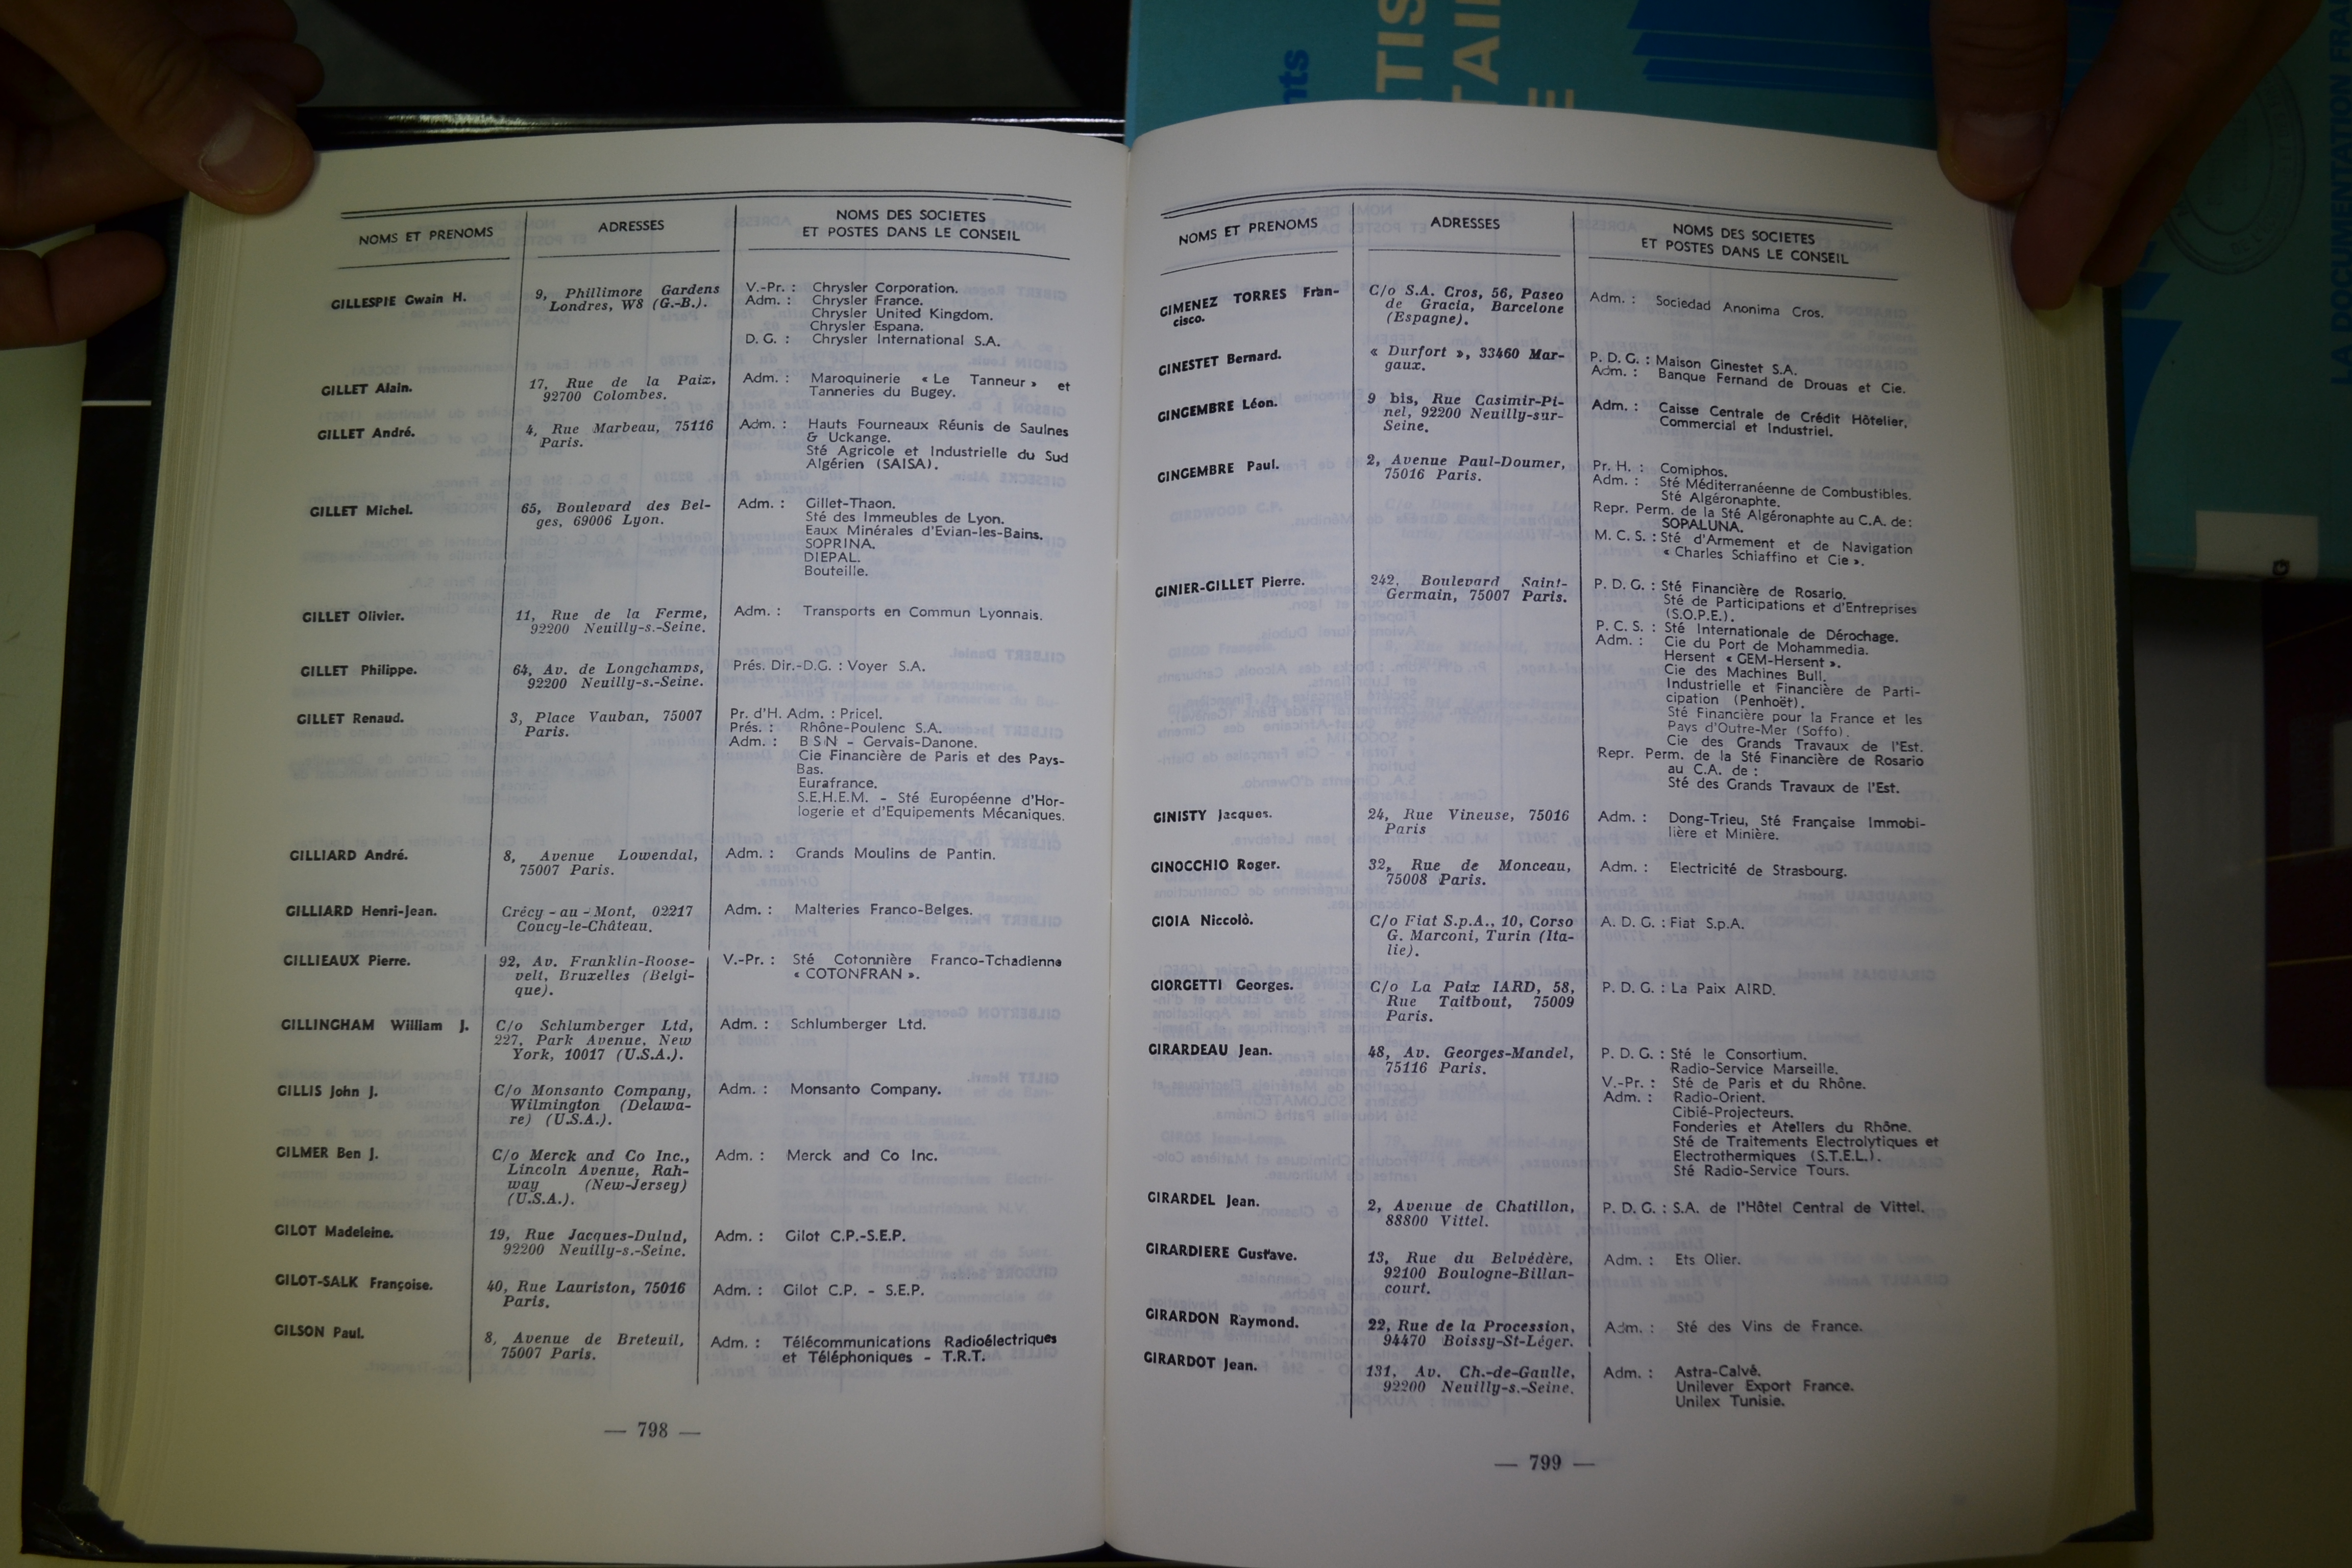 NOMS ET PRENOMS
ADRESSES
NOMS DES SOCIETES
ET POSTES DANS LE CONSEIL
GILLESPIE Gwain H.
9, Phillimore Gardens
Londres, W8 (G.-B.).
V.-Pr. : Chrysler Corporation.
Adm. : Chrysler France.
Chrysler United Kingdom.
Chrysler Espana.
D. G. : Chrysler International S.A.
GILLET Alain.
17, Rue de la Paix,
92700 Colombes.
Adm. : Maroquinerie « Le Tanneur » et
Tanneries du Bugey.
GILLET André.
4, Rue Marbeau, 75116
Paris.
Adm. : Hauts Fourneaux Réunis de Saulnes
& Uckange.
Sté Agricole et Industrielle du Sud
Algérien (SAISA).
GILLET Michel.
65, Boulevard des Bel-
ges, 69006 Lyon.
Adm. : Gillet-Thaon.
Sté des Immeubles de Lyon.
Eaux Minérales d'Evian-les-Bains.
SOPRINA.
DIEPAL.
Bouteille.
GILLET Olivier.
11, Rue de la Ferme,
92200 Neuilly-s.-Seine.
Adm. : Transports en Commun Lyonnais.
GILLET Philippe.
64, Av. de Longchamps,
92200 Neuilly-s.-Seine.
Prés. Dir.-D.G. : Voyer S.A.
GILLET Renaud.
3, Place Vauban, 75007
Paris.
Pr. d'H. Adm. : Pricel.
Prés. : Rhône-Poulenc S.A.
Adm. : B S N - Gervais-Danone.
Cie Financière de Paris et des Pays-
Bas.
Eurafrance.
S.E.H.E.M. - Sté Européenne d'Hor-
logerie et d'Equipements Mécaniques.
GILLIARD André.
8, Avenue Lowendal,
75007 Paris.
Adm. : Grands Moulins de Pantin.
GILLIARD Henri-Jean.
Crécy - au - Mont, 02217
Coucy-le-Château.
Adm. : Malteries Franco-Belges.
GILLIEAUX Pierre.
92, Av. Franklin-Roose-
velt, Bruxelles (Belgi-
que).
V.-Pr. : Sté Cotonnière Franco-Tchadienne
« COTONFRAN ».
GILLINGHAM William J.
C/o Schlumberger Ltd,
227, Park Avenue, New
York, 10017 (U.S.A.).
Adm. : Schlumberger Ltd.
GILLIS John J.
C/o Monsanto Company,
Wilmington (Delawa-
re) (U.S.A.).
Adm. : Monsanto Company.
GILMER Ben J.
C/o Merck and Co Inc.,
Lincoln Avenue, Rah-
way (New-Jersey)
(U.S.A.).
Adm. : Merck and Co Inc.
GILOT Madeleine.
19, Rue Jacques-Dulud,
92200 Neuilly-s.-Seine.
Adm. : Gilot C.P.-S.E.P.
GILOT-SALK Françoise.
40, Rue Lauriston, 75016
Paris.
Adm. : Gilot C.P. - S.E.P.
GILSON Paul.
8, Avenue de Breteuil,
75007 Paris.
Adm. : Télécommunications Radioélectriques
et Téléphoniques - T.R.T.
— 798 —
NOMS ET PRENOMS
ADRESSES
NOMS DES SOCIETES
ET POSTES DANS LE CONSEIL
GIMENEZ TORRES Fran-
cisco.
C/o S.A. Cros, 56, Paseo
de Gracia, Barcelone
(Espagne).
Adm. : Sociedad Anonima Cros.
GINESTET Bernard.
« Durfort », 33460 Mar-
gaux.
P. D. G. : Maison Ginestet S.A.
Adm. : Banque Fernand de Drouas et Cie.
GINGEMBRE Léon.
9 bis, Rue Casimir-Pi-
nel, 92200 Neuilly-sur-
Seine.
Adm. : Caisse Centrale de Crédit Hôtelier,
Commercial et Industriel.
GINGEMBRE Paul.
2, Avenue Paul-Doumer,
75016 Paris.
Pr. H. : Comiphos.
Adm. : Sté Méditerranéenne de Combustibles.
Sté Algéronaphte.
Repr. Perm. de la Sté Algéronaphte au C.A. de :
SOPALUNA.
M. C. S. : Sté d'Armement et de Navigation
« Charles Schiaffino et Cie ».
GINIER-GILLET Pierre.
242, Boulevard Saint-
Germain, 75007 Paris.
P. D. G. : Sté Financière de Rosario.
Sté de Participations et d'Entreprises
(S.O.P.E.).
P. C. S. : Sté Internationale de Dérochage.
Adm. : Cie du Port de Mohammedia.
Hersent « GEM-Hersent ».
Cie des Machines Bull.
Industrielle et Financière de Parti-
cipation (Penhoët).
Sté Financière pour la France et les
Pays d'Outre-Mer (Soffo).
Cie des Grands Travaux de l'Est.
Repr. Perm. de la Sté Financière de Rosario
au C.A. de :
Sté des Grands Travaux de l'Est.
GINISTY Jacques.
24, Rue Vineuse, 75016
Paris
Adm. : Dong-Trieu, Sté Française Immobi-
lière et Minière.
GINOCCHIO Roger.
32, Rue de Monceau,
75008 Paris.
Adm. : Electricité de Strasbourg.
GIOIA Niccolò.
C/o Fiat S.p.A., 10, Corso
G. Marconi, Turin (Ita-
lie).
A. D. G. : Fiat S.p.A.
GIORGETTI Georges.
C/o La Paix IARD, 58,
Rue Taitbout, 75009
Paris.
P. D. G. : La Paix AIRD.
GIRARDEAU Jean.
48, Av. Georges-Mandel,
75116 Paris.
P. D. G. : Sté le Consortium.
Radio-Service Marseille.
V.-Pr. : Sté de Paris et du Rhône.
Adm. : Radio-Orient.
Cibié-Projecteurs.
Fonderies et Ateliers du Rhône.
Sté de Traitements Electrolytiques et
Electrothermiques (S.T.E.L.).
Sté Radio-Service Tours.
GIRARDEL Jean.
2, Avenue de Chatillon,
88800 Vittel.
P. D. G. : S.A. de l'Hôtel Central de Vittel.
GIRARDIERE Gustave.
13, Rue du Belvédère,
92100 Boulogne-Billan-
court.
Adm. : Ets Olier.
GIRARDON Raymond.
22, Rue de la Procession,
94470 Boissy-St-Léger.
Adm. : Sté des Vins de France.
GIRARDOT Jean.
131, Av. Ch.-de-Gaulle,
92200 Neuilly-s.-Seine.
Adm. : Astra-Calvé.
Unilever Export France.
Unilex Tunisie.
— 799 —